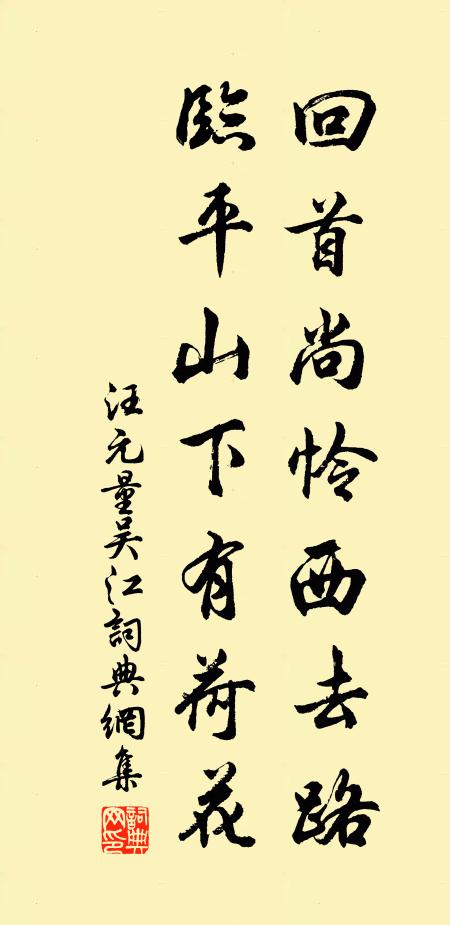 回首尚怜西去路
臨平山下有荷花
汪元量吴江詞典網集
詞典网印